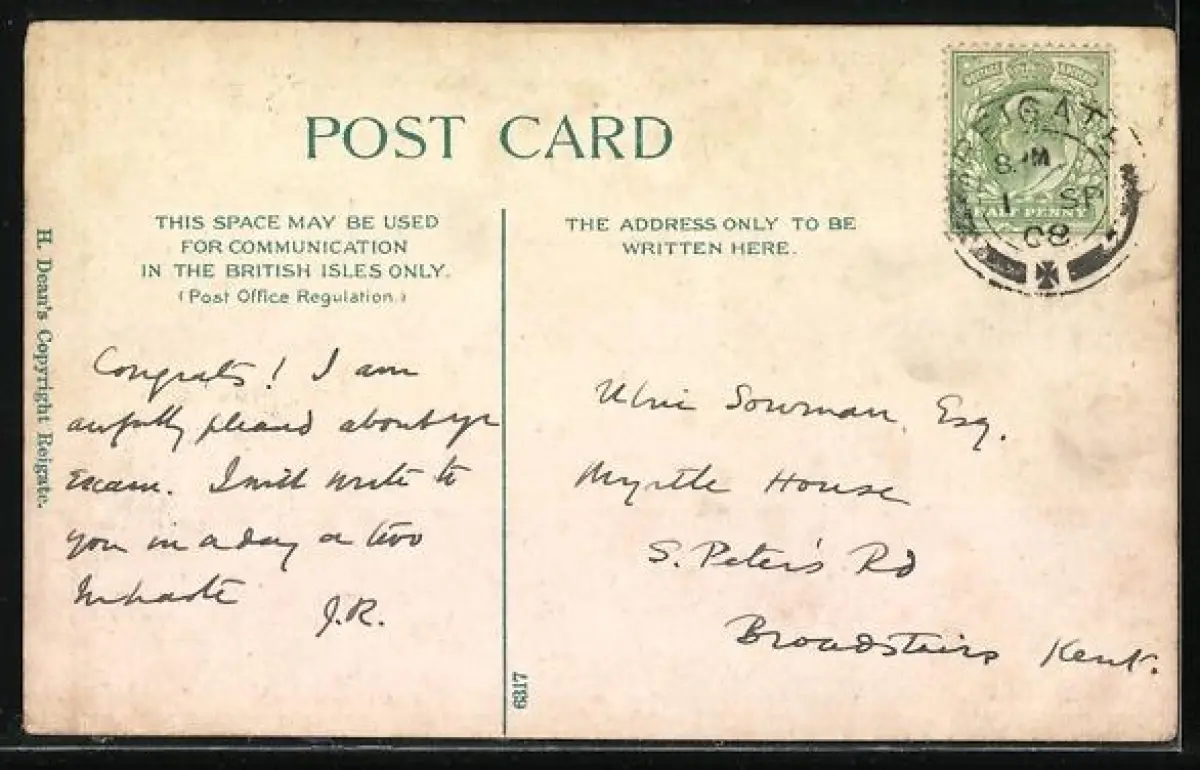 POST CARD
THIS SPACE MAY BE USED
FOR COMMUNICATION
IN THE BRITISH ISLES ONLY.
(Post Office Regulation.)
THE ADDRESS ONLY TO BE
WRITTEN HERE.
H. Dean's Copyright Reigate.
Congrats! I am
awfully pleased about yr
Exam. I will write to
you in a day or two
In haste
J.R.
Sowman, Esq.
Myrtle House
S. Peter's Rd
Broadstairs Kent.
6317
REIGATE
1 SP
08
HALF PENNY